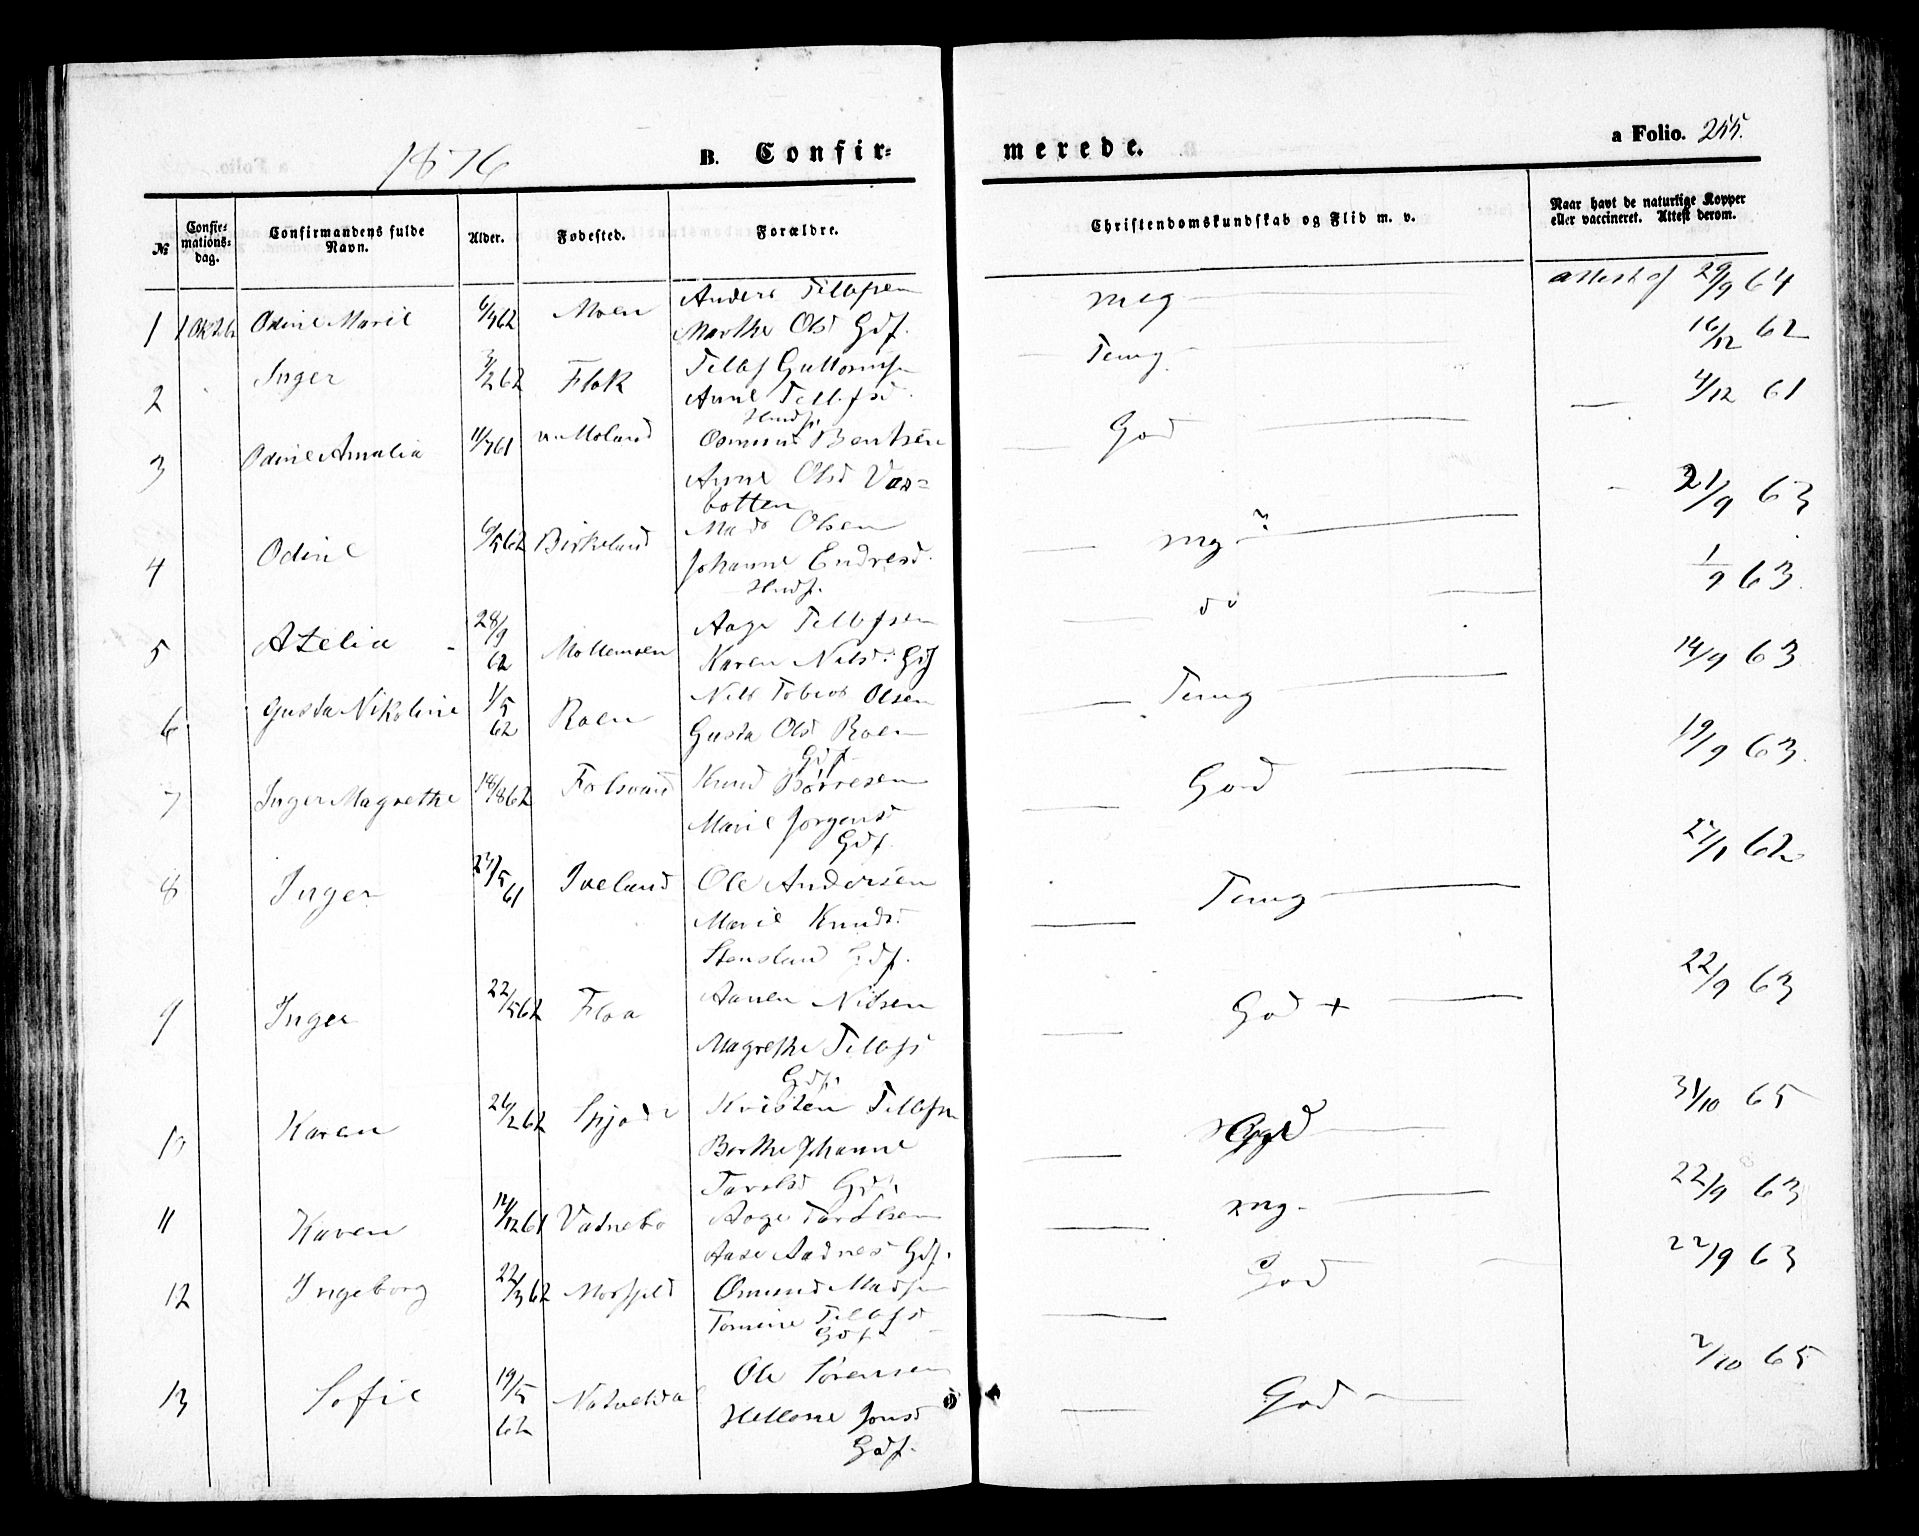 1876
B. Confir-
merede.
a Folio. 255.
№
Confir-
mations-
dag.
Confirmandens fulde
Navn.
Alder.
Fødested.
Forældre.
Christendomskundskab og Flid m. v.
Naar havt de naturlige Kopper
eller vaccineret. Attest derom.
1 Odine Marie 6/9 62 Moen Anders Tellefsen meg attest af 29/9 64
Marthe Olsd Gdf.
2 Inger 3/2 62 Flak Tellef Guttormsen Temg 16/12 62
Anne Tellefsd
Husf.
3 Odine Amalia 11/7 61 Moland Osmund Bentsen God 4/12 61
Anne Olsd Vas=
botten
4 Odine 6/5 62 Birkeland Mads Olsen mg 21/9 63
Johanne Endresd.
Husf.
5 Azelia 28/9 62 Mollemoen Aage Tellefsen do 1/9 63.
Karen Nilsd. Gdf
6 Gusta Nikoline 1/5 62 Roen Nils Tobias Olsen Temg 14/9 63
Gusta Olsd Roen
Gdf
7 Inger Magrethe 18/8 62 Folsvand Knud Børresen God 19/9 63.
Marie Jørgensd
Gdf.
8 Inger 27/5 61 Iveland Ole Andersen Temg 62
Marie Knudsd.
Stensland Gdf.
9 Inger 22/5 62 Floa Aanen Nilsen God + 22/9 63
Magrethe Tellefsd
Gdf.
10 Karen 26/2 62 Kristen Tellefsen 31/10 65
Berthe Johanne
Taralsd Gdf.
11 Karen 61 Vatnebo Aage Taralsen mg. 22/9 63
Aase Aadnes Gdf.
12 Ingeborg 22/3 62 Morfjeld Osmund Madsen God 22/9 63
Tomine Tellefsd
Gdf
13 Sofie 19/5 62 Natveldal Ole Sørensen God 2/10 65
Hellene Jonsd
Gdf.